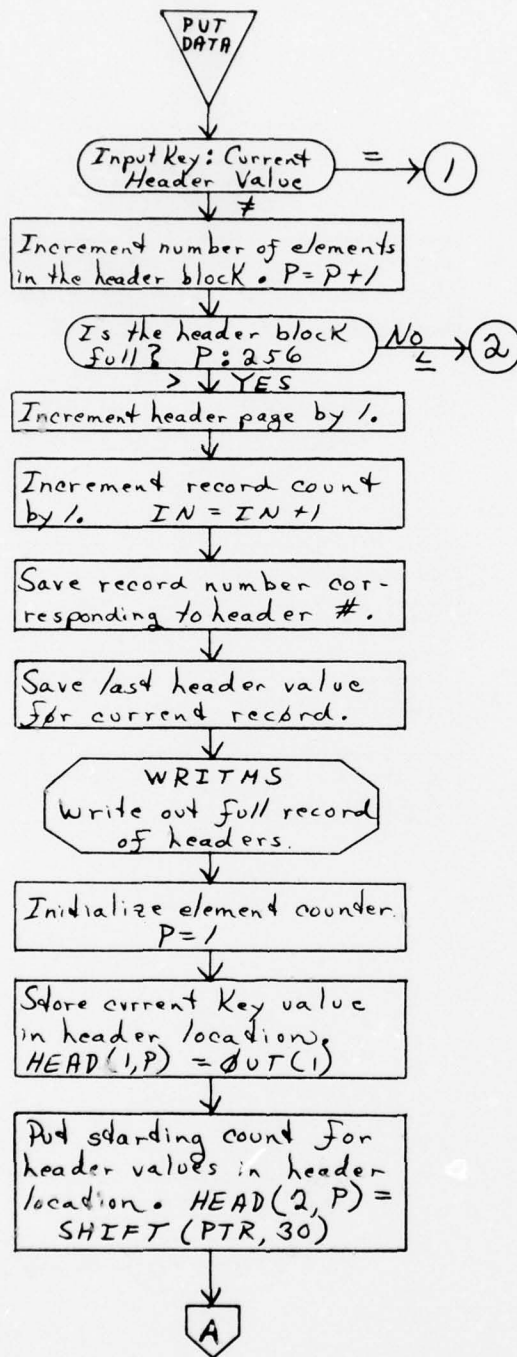 PUT
DATA
Input Key: Current
Header Value
=
1
≠
Increment number of elements
in the header block. P = P+1
Is the header block
full? P: 256
No
≤
2
> YES
Increment header page by 1.
Increment record count
by 1. IN = IN +1
Save record number cor-
responding to header #.
Save last header value
før current record.
WRITMS
Write out full record
of headers.
Initialize element counter.
P=1
Store current Key value
in header location.
HEAD(1,P) = ØUT(1)
Put starting count for
header values in header
location. HEAD(2, P) =
SHIFT (PTR, 30)
A